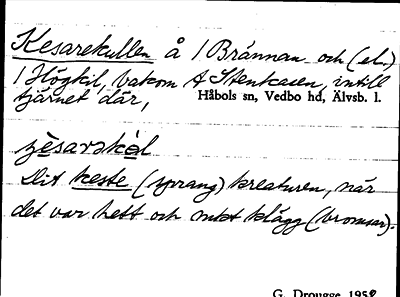 Kesarekullen å 1 Brännan och (el.)
1 Högkil, bakom Stenkasen, intill
tjärnet där,
Håbols sn, Vedbo hd, Älvsb. l.
Dit keste (sprang) kreaturen, när
det var hett och mkt klägg (bromsar).
G. Drougge 1952